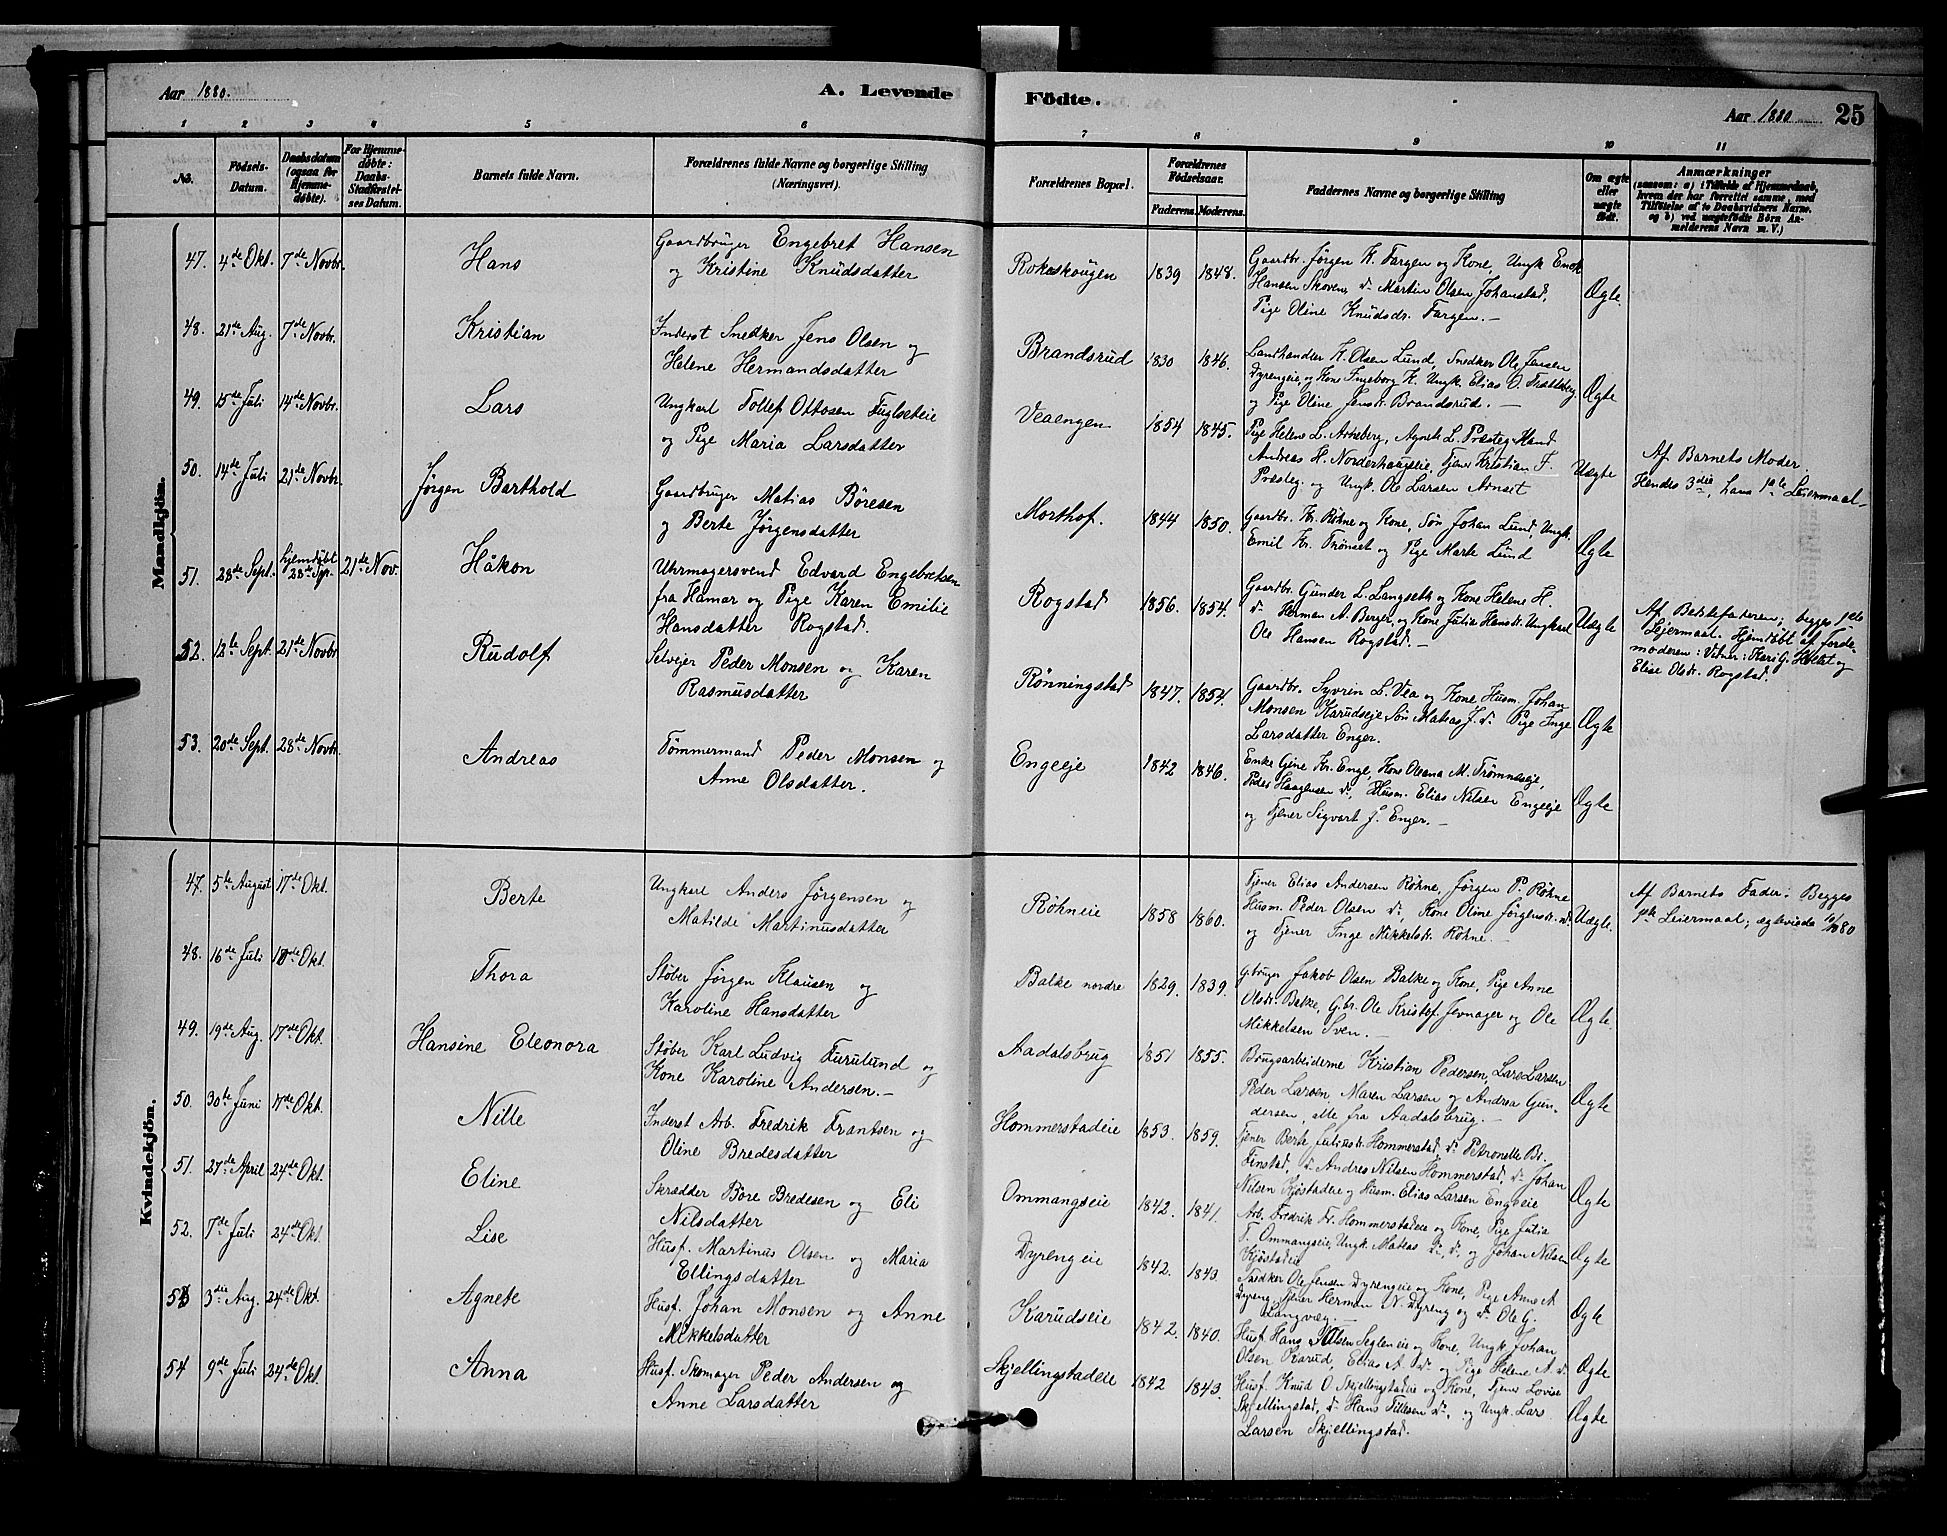 Aar 1880.
A. Levende Födte.
Aar 1880
25
1 2 3 4 5 6 7 8 9 10 11
No.
Födsels-Datum.
Daabsdatum (ogsaa for Hjemme-döbte).
For Hjemme-döbte: Daabs-Stadfæstel-ses Datum.
Barnets fulde Navn.
Forældrenes fulde Navne og borgerlige Stilling (Næringsvei).
Forældrenes Bopæl.
Forældrenes Födselsaar.
Faderens. Moderens.
Faddernes Navne og borgerlige Stilling
Om ægte eller uægte födt.
Anmærkninger
(saasom: a) i Tilfælde af Hjemmedaab, hvem der har forrettet samme, med Tilföielse af to Daabsvidners Navne. og b) ved uægtefödte Börn An-melderens Navn m. V.)
Mandkjön.
47. 4de Okt. 7de Novbr. Hans
Gaardbruger Engebret Hansen
og Kristine Knudsdatter
Rokoskougen 1839 1848.
Gaardbr. Jørgen K. Fargen og Kone, Ungk. Enok
Hansen Skoven, do Martin Olsen Johanstad,
Pige Oline Knudsdr. Fargen.
Ægte.
48. 21de Aug. 7de Novbr. Kristian
Inderst Snedker Jens Olsen og
Helene Hermandsdatter
Brandsrud 1830 1846.
Landhandler K. Olsen Lund, Snedker Ole Jensen
Dyrengeie, og Kone Ingeborg K. Ungk. Elias O.
og Pige Oline Jensdr. Brandsrud.
Ægte
49. 15de Juli 14de Novbr. Lars
Ungkarl Tollef Ottosen Fuglseteie
og Pige Maria Larsdatter
Veaengen 1854 1845.
Pige Helene L. Arneberg, Agnete L. Præsteg.
Andreas H. Norderhaugeie, Tjener Kristian F.
Præsteg. og Ungk. Ole Larsen
Uægte
Af Barnets Moder.
Hendes 3die, hans 1ste Leiermaal
50. 14de Juli 21de Novbr. Jørgen Barthold
Gaardbruger Matias Böresen
og Berte Jørgensdatter
Morthof. 1844 1850.
Gaardbr. Kr. Röhne og Kone, Søn Johan Lund, Ungk.
Emil Kr. Trönset og Pige Marte Lund
Ægte
51. 28de Sept. hjemdøbt 28de Sept. 21de Nov. Håkon
Uhrmagersvend Edvard Engebretsen
fra Hamar og Pige Karen Emilie
Hansdatter Rogstad.
Rogstad 1856. 1854.
Gaardbr. Gunder L. Langseth og Kone Helene H.
do Herman A. Berger, og Kone Julia Hansdr. Ungkarl
Ole Hansen Rogstad.
Uægte
Af Bedstefaderen; begges 1ste
Leiermaal. Hjemdøbt af Jorde-
moderen: Vitner: Kari G. og
Elise Olsdr. Rogstad.
52. 12te Sept. 21de Novbr. Rudolf
Selveier Peder Monsen og Karen
Rasmusdatter
Rönningstad 1847. 1854.
Gaardbr. Syvrin L. Vea og Kone Husm. Johan
Monsen Karudseie Søn Matias J. do Pige Inge
Larsdatter Enger.
Ægte
53. 20de Sept. 28de Novbr. Andreas
Tömmermand Peder Monsen og
Anne Olsdatter.
Engeeje 1842 1846.
Enke Gine Kr. Enge, Kone Oleana M. Trömneseje,
Peder Haagensen do, Husm. Elias Nilsen Engeeje
og Tjener Sigvart J. Enger.
Ægte
Kvindekjön.
47. 5te August 17de Okt. Berte
Ungkarl Anders Jørgensen og
Matilde Martinusdatter
Röhneie 1858 1860.
Tjener Elias Andersen Röhne, Jørgen P. Röhne
Husm. Peder Olsen do, Kone Oline Jørgensdr. do
og Tjener Inge Mikkelsdr. Röhne.
Uægte.
Af Barnets Fader: Begges
1ste Leiermaal; ægteviede /80
48. 16de Juli Okt. Thora
Støber Jørgen Klausen og
Karoline Hansdatter
Balke nordre 1829. 1839.
G.bruger Jakob Olsen Balke og Kone, Pige Anne
Olsdr. Balke, G.br. Ole Kristof. Jevnager og Ole
Mikkelsen Sven.
Ægte.
49. 19de Aug. 17de Okt. Hansine Eleonora
Støber Karl Ludvig Furulund og
Kone Karoline Andersen.
Aadalsbrug 1851 1855.
Brugsarbeiderne Kristian Pedersen, Lars Larsen
Peder Larsen, Maren Larsen og Andrea Gun-
dersen, alle fra Aadalsbrug.
Ægte
50. 30te Juni 17de Okt. Nille
Inderst Arb. Fredrik Frantsen og
Oline Bredesdatter
Hommerstadeie 1853. 1859.
Tjener Berte Juliesdr. Hommerstad, do Petronelle Br.
Finstad, do Andreas Nilsen Hommerstad, do Johan
Nilsen Kjøstadeie og Husm. Elias Larsen Engeeie
Ægte
51. 27de April 24de Okt. Eline
Skrædder Bore Bredesen og Eli
Nilsdatter
Ommangseie 1842. 1841.
Arb. Fredrik Fr. Hommerstadeie og Kone, Pige Julia
F. Ommangseie, Ungk. Matias do, do, og Johan Nilsen
Kjöstadeie
Ægte
52. 7de Juli 24de Okt. Lise
Husf. Martinus Olsen og Maria
Ellingsdatter
Dyrengeie 1842. 1843
Snedker Ole Jensen Dyrengeie og Kone, Pige Anne A.
Dyreng, Tjener Herman N. Dyreng og do Ole G.
Langvæg.
Ægte
53 3die Aug. 24de Okt. Agnete
Husf. Johan Monsen og Anne
Mikkelsdatter
Karudseie 1842. 1840.
Husf. Hans Olsen Segleneie og Kone, Ungk. Johan
Olsen Karud, Elias A. do og Pige Helene A. do
Ægte
54 9de Juli 24de Okt. Anna
Husf. Skomager Peder Andersen og
Anne Larsdatter
Skjellingstadeie 1842 1843.
Husf. Knud O. Skjellingstadeie og Kone, Tjener Lovise
Skjellingstad, do Hans Tillesen do, og Ungk. Lars
Larsen Skjellingstad.
Ægte